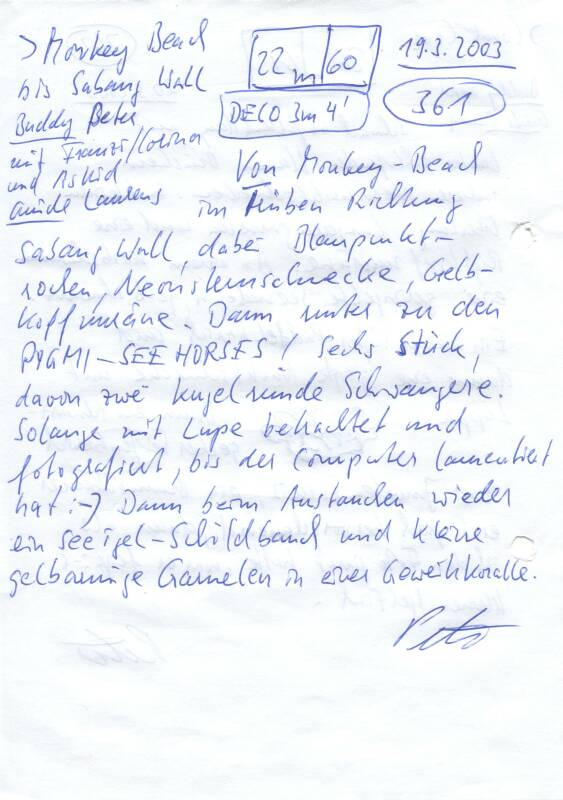 > Monkey Beach
bis Sabang Wall
Buddy Peter
mit Franzi/Corinna
und Astrid
Guide Laurens
22m 60'
DECO 3m 4'
19.3.2003
361
Von Monkey-Beach
im Trüben Richtung
Sabang Wall, dabei Blaupunkt-
rochen, Neonsternschnecke, Gelb-
kopfmuräne. Dann runter zu den
PYGMI-SEEHORSES / sechs Stück,
davon zwei kugelrunde Schwangere.
Solange mit Lupe betrachtet und
fotografiert, bis der Computer lamentiert
hat :-) Dann beim Austauchen wieder
ein Seeigel-Schildbauch und kleine
gelbarmige Garnelen in einer Geweihkoralle.
Peter